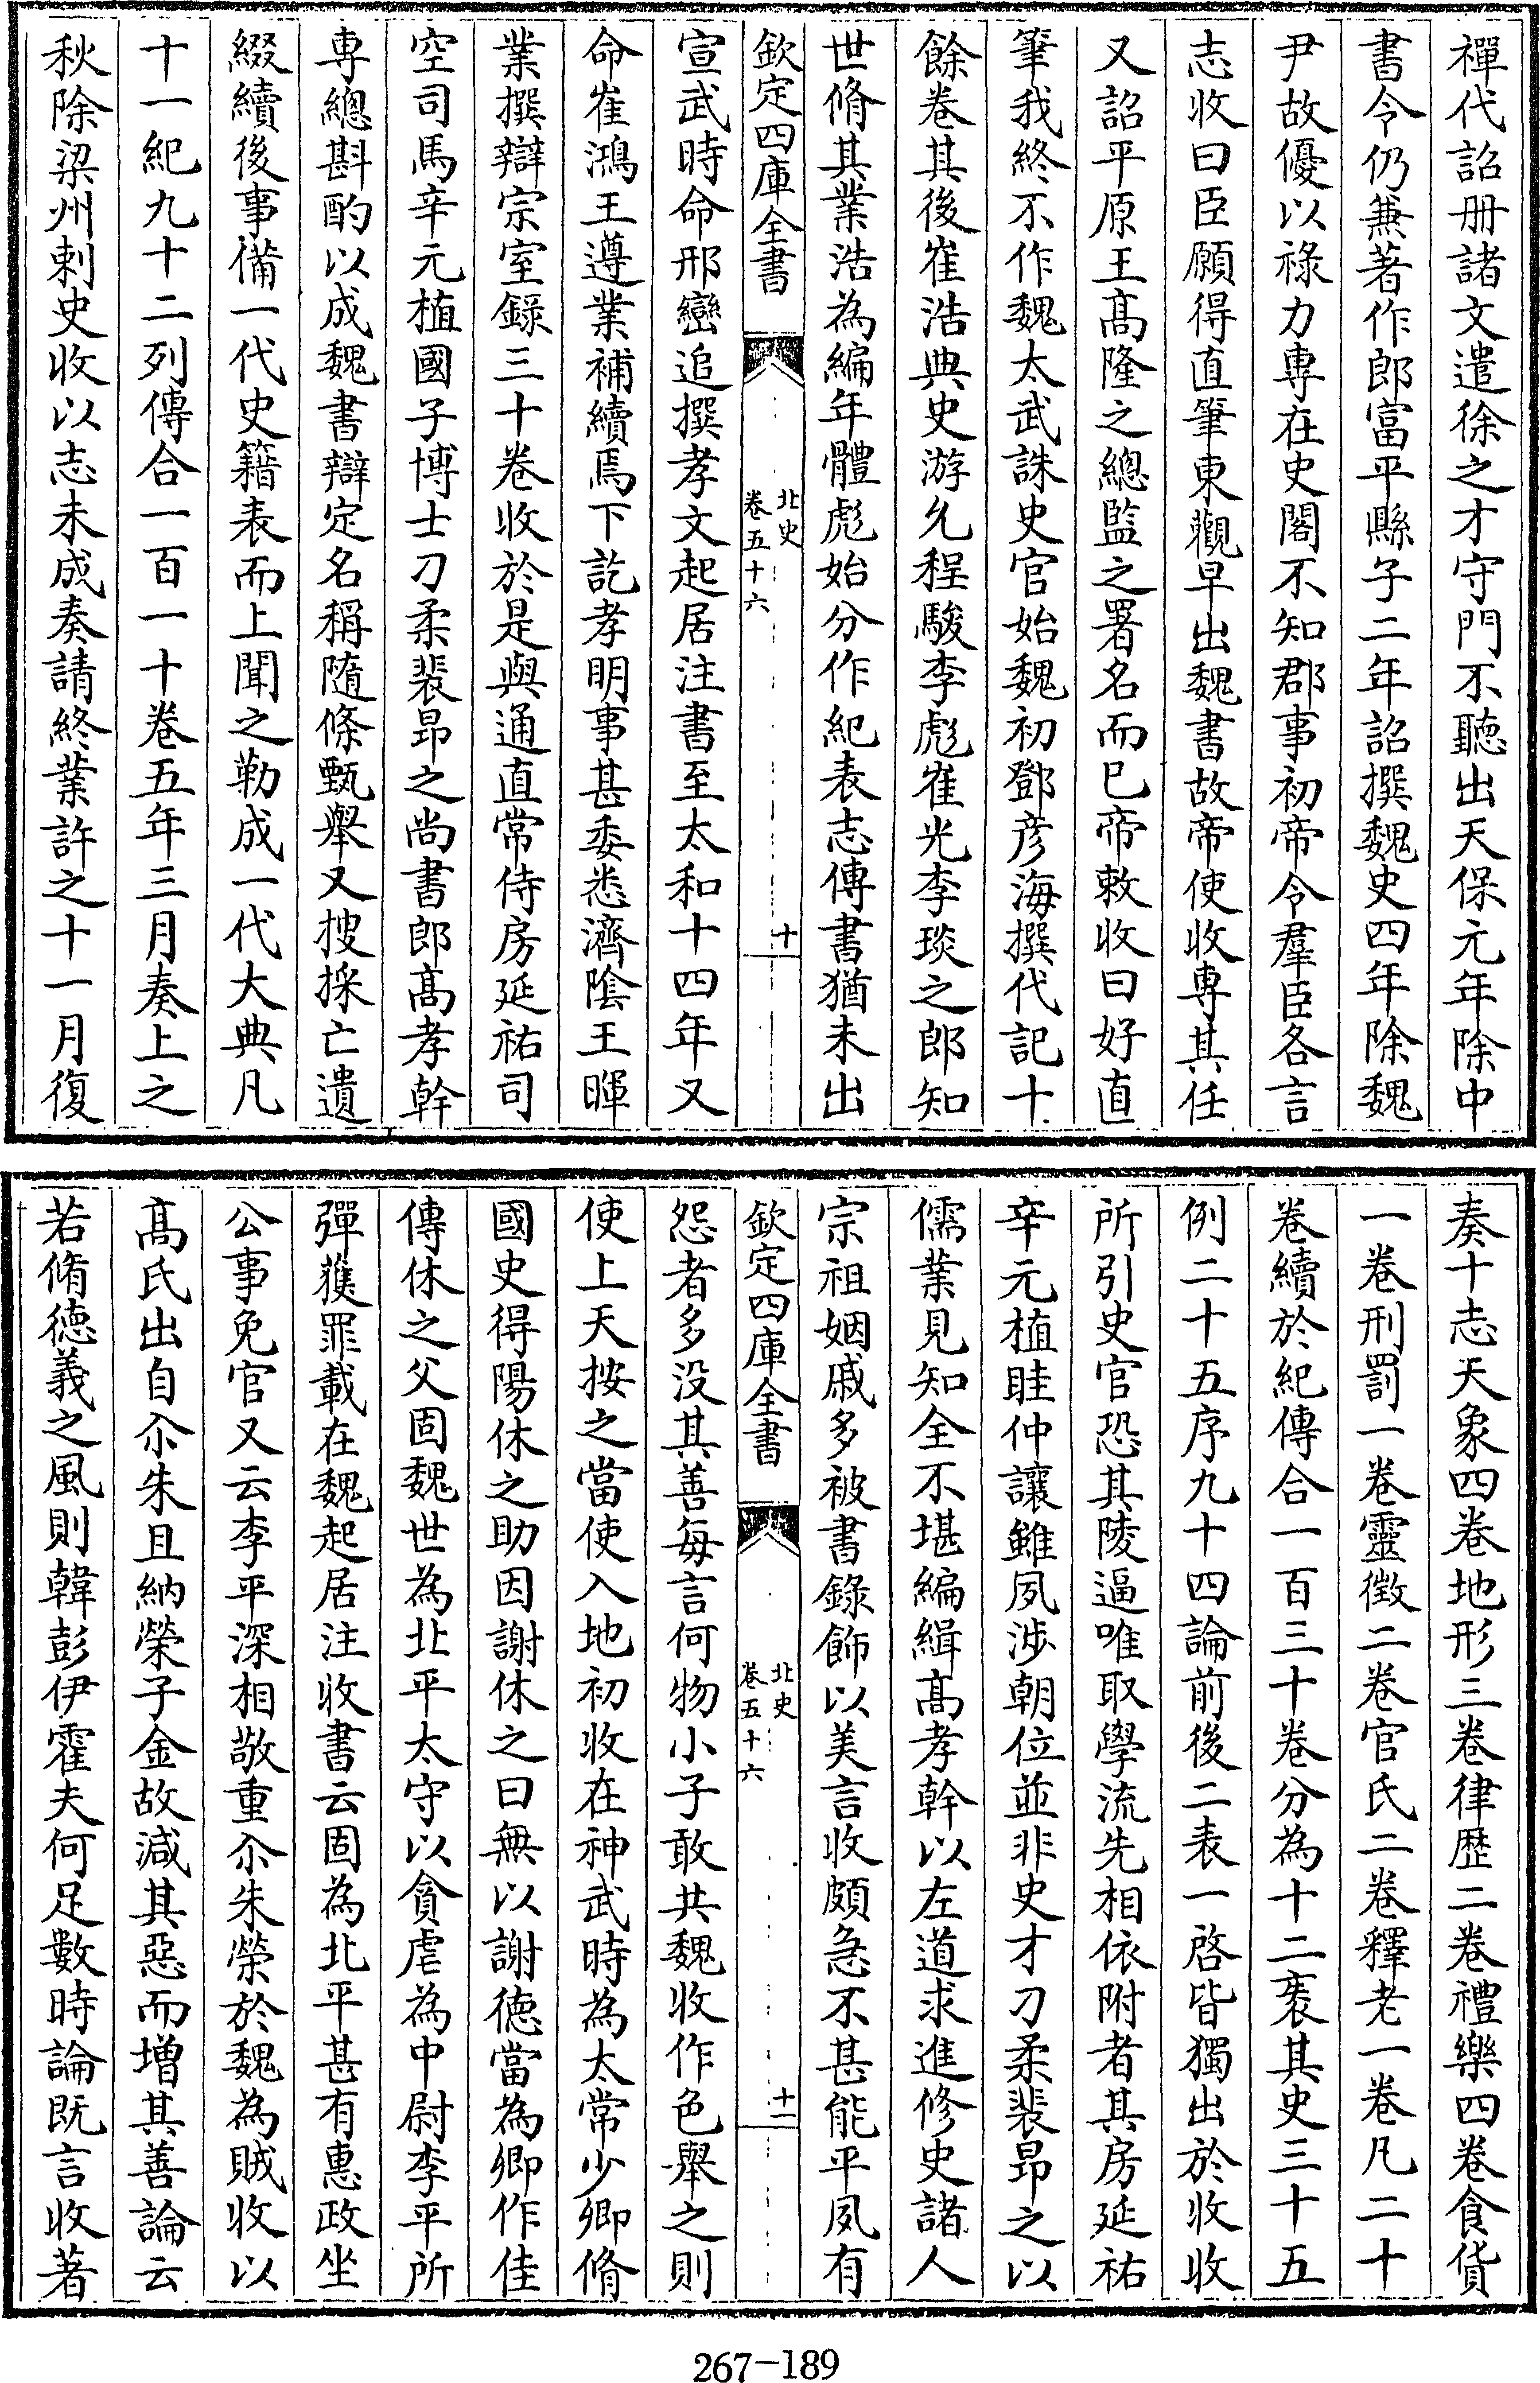 禪代詔冊諸文遣徐之才守門不聽出天保元年除中
書令仍兼著作郎富平縣子二年詔撰魏史四年除魏
尹故優以祿力專在史閣不知郡事初帝令羣臣各言
志收曰臣願得直筆東觀早出魏書故帝使收專其任
又詔平原王髙隆之總監之署名而已帝敕收曰好直
筆我終不作魏太武誅史官始魏初鄧彦海撰代記十
餘卷其後崔浩典史游允程駿李彪崔光李琰之郎知
世脩其業浩為編年體彪始分作紀表志傳書猶未出
欽定四庫全書 北史 卷五十六 十
宣武時命邢巒追撰孝文起居注書至太和十四年又
命崔鴻王遵業補續焉下訖孝明事甚委悉濟隂王暉
業撰辯宗室録三十卷收於是與通直常侍房延祐司
空司馬辛元植國子博士刁柔裴昂之尚書郎髙孝幹
専總斟酌以成魏書辯定名稱隨條甄舉又搜採亡遺
綴續後事備一代史籍表而上聞之勒成一代大典凡
十一紀九十二列傳合一百一十卷五年三月奏上之
秋除梁州刺史收以志未成奏請終業許之十一月復
奏十志天象四卷地形三卷律歴二卷禮樂四卷食貨
一卷刑罰一卷靈徴二卷官氏二卷釋老一卷凡二十
卷續於紀傳合一百三十卷分為十二袠其史三十五
例二十五序九十四論前後二表一啓皆獨出於收收
所引史官恐其陵逼唯取學流先相依附者其房延祐
辛元植眭仲讓雖夙涉朝位並非史才刁柔裴昂之以
儒業見知全不堪編緝髙孝幹以左道求進修史諸人
宗祖姻戚多被書錄飾以美言收頗急不甚能平夙有
欽定四庫全書 北史 卷五十六 十一
怨者多没其善每言何物小子敢共魏收作色舉之則
使上天按之當使入地初收在神武時為太常少卿脩
國史得陽休之助因謝休之曰無以謝徳當為卿作佳
傳休之父固魏世為北平太守以貪虐為中尉李平所
彈獲罪載在魏起居注收書云固為北平甚有惠政坐
公事免官又云李平深相敬重尒朱榮於魏為賊收以
髙氏出自尒朱且納榮子金故減其惡而增其善論云
若脩徳義之風則韓彭伊霍夫何足數時論既言收著
267-189